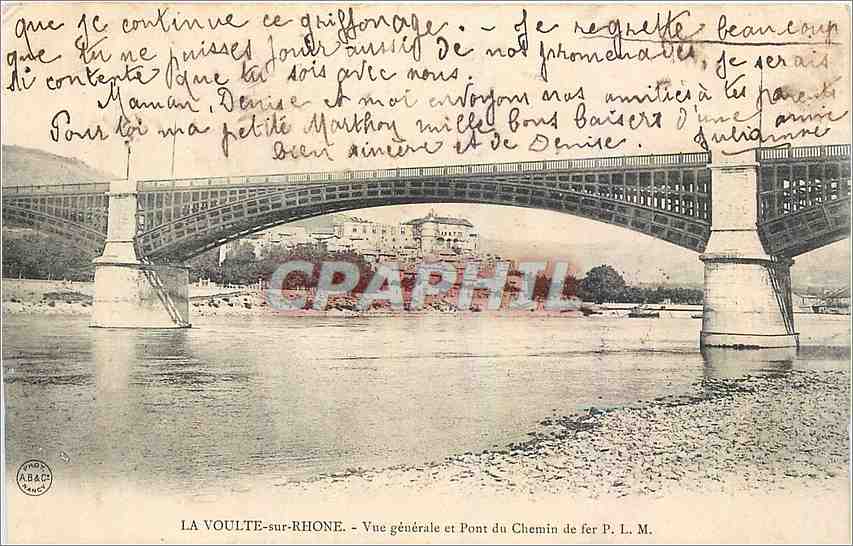 que je continue ce griffonage. - Je regrette beaucoup
que tu ne puisses jouir aussi de nos promenades, je serais
si contente que tu sois avec nous.
Maman, Denise et moi envoyons nos amitiés à tes parents
Pour toi ma petite Marthon mille bons baisers d'une amie
bien sincère et de Denise. Julianne
CRAPHIL
PHOT.
A.B.&C
NANCY
LA VOULTE-sur-RHONE. - Vue générale et Pont du Chemin de fer P. L. M.